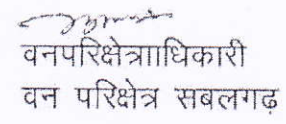 वनपरिक्षेत्रााधिकारी
वन परिक्षेत्र सबलगढ़